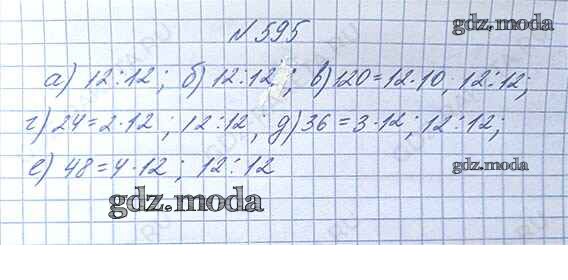 №595
gdz.moda
а) 12:12; б) 12:12; в) 120=12·10, 12:12;
г) 24=2·12; 12:12, д) 36=3·12; 12:12;
е) 48=4·12; 12:12
gdz.moda
gdz.moda